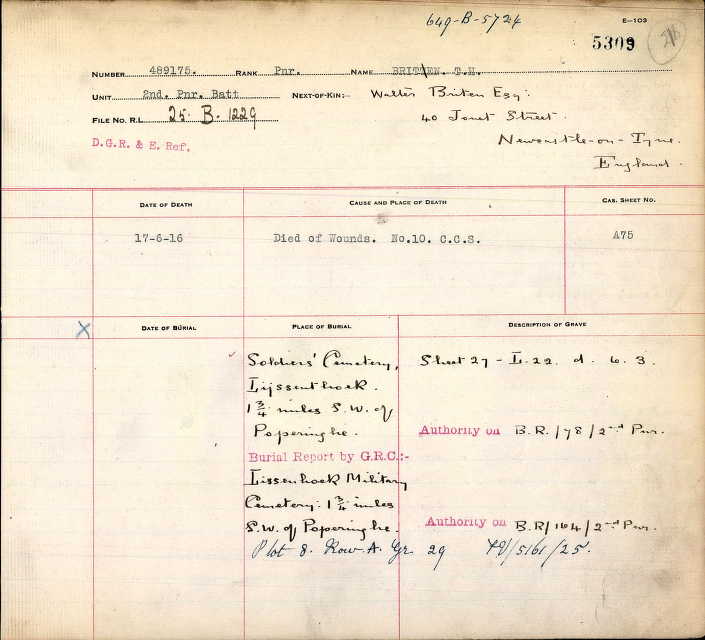 649-B-5724
E-103
5309
NUMBER 489175. RANK Pnr. NAME BRITTEN. T.H.
UNIT 2nd. Pnr. Batt NEXT-OF-KIN:- Walter Briten Esq:
FILE NO. R.L. 25. B. 1229 40 Janet Street.
D.G.R. & E. Ref. Newcastle-on-Tyne.
England.
DATE OF DEATH CAUSE AND PLACE OF DEATH CAS. SHEET NO.
17-6-16 Died of Wounds. No.10. C.C.S. A75
X DATE OF BURIAL PLACE OF BURIAL DESCRIPTION OF GRAVE
Soldiers' Cemetery, Sheet 27 - L. 22. d. 6. 3.
Lijssenthoek.
1 3/4 miles S.W. of
Poperinghe. Authority on B.R./78/2nd Pnr.
Burial Report by G.R.C.:-
Lissenhoek Military
Cemetery: 1 3/4 miles
S.W. of Poperinghe. Authority on B.R/164/2nd Pnr.
Plot 8. Row A. Gr. 29 /5161/25.